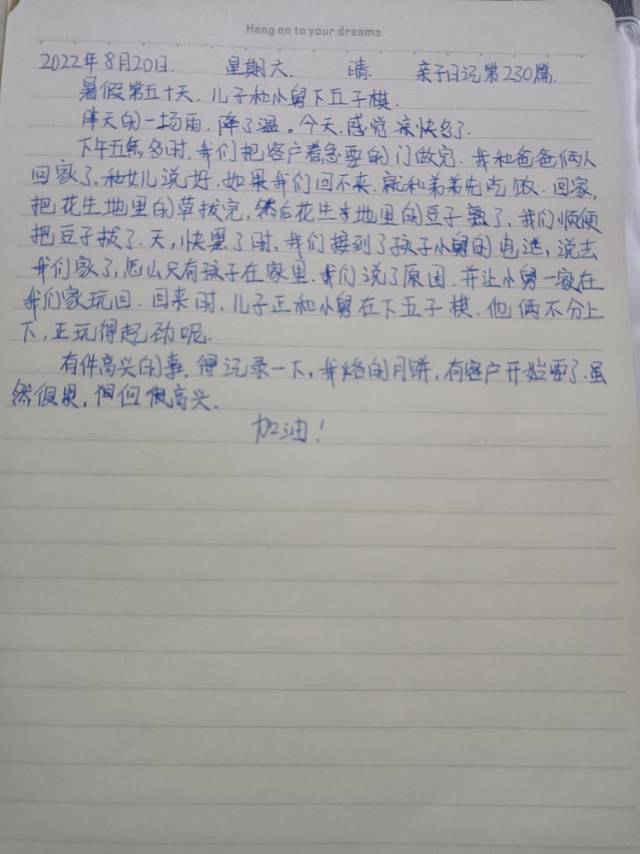 Hang on to your dreams
2022年8月20日. 星期六. 晴. 亲子日记第230篇.
暑假第五十天,儿子和小舅下五子棋.
昨天的一场雨,降了温。今天,感觉凉快多了.
下午五点多时,我们把客户着急要的门做完.我和爸爸俩人
回家了,和女儿说好,如果我们回不来,就和弟弟先吃饭.回家,
把花生地里的草拔完,然后花生地里的豆子熟了,我们顺便
把豆子拔了.天,快黑了时,我们接到了孩子小舅的电话,说去
我们家了,怎么只有孩子在家里.我们说了原因.并让小舅一家在
我们家玩回.回来时,儿子正和小舅在下五子棋.他俩不分上
下,正玩得起劲呢.
有件高兴的事,得记录一下,我烙的月饼,有客户开始要了.虽
然很累,但很高兴.
加油!